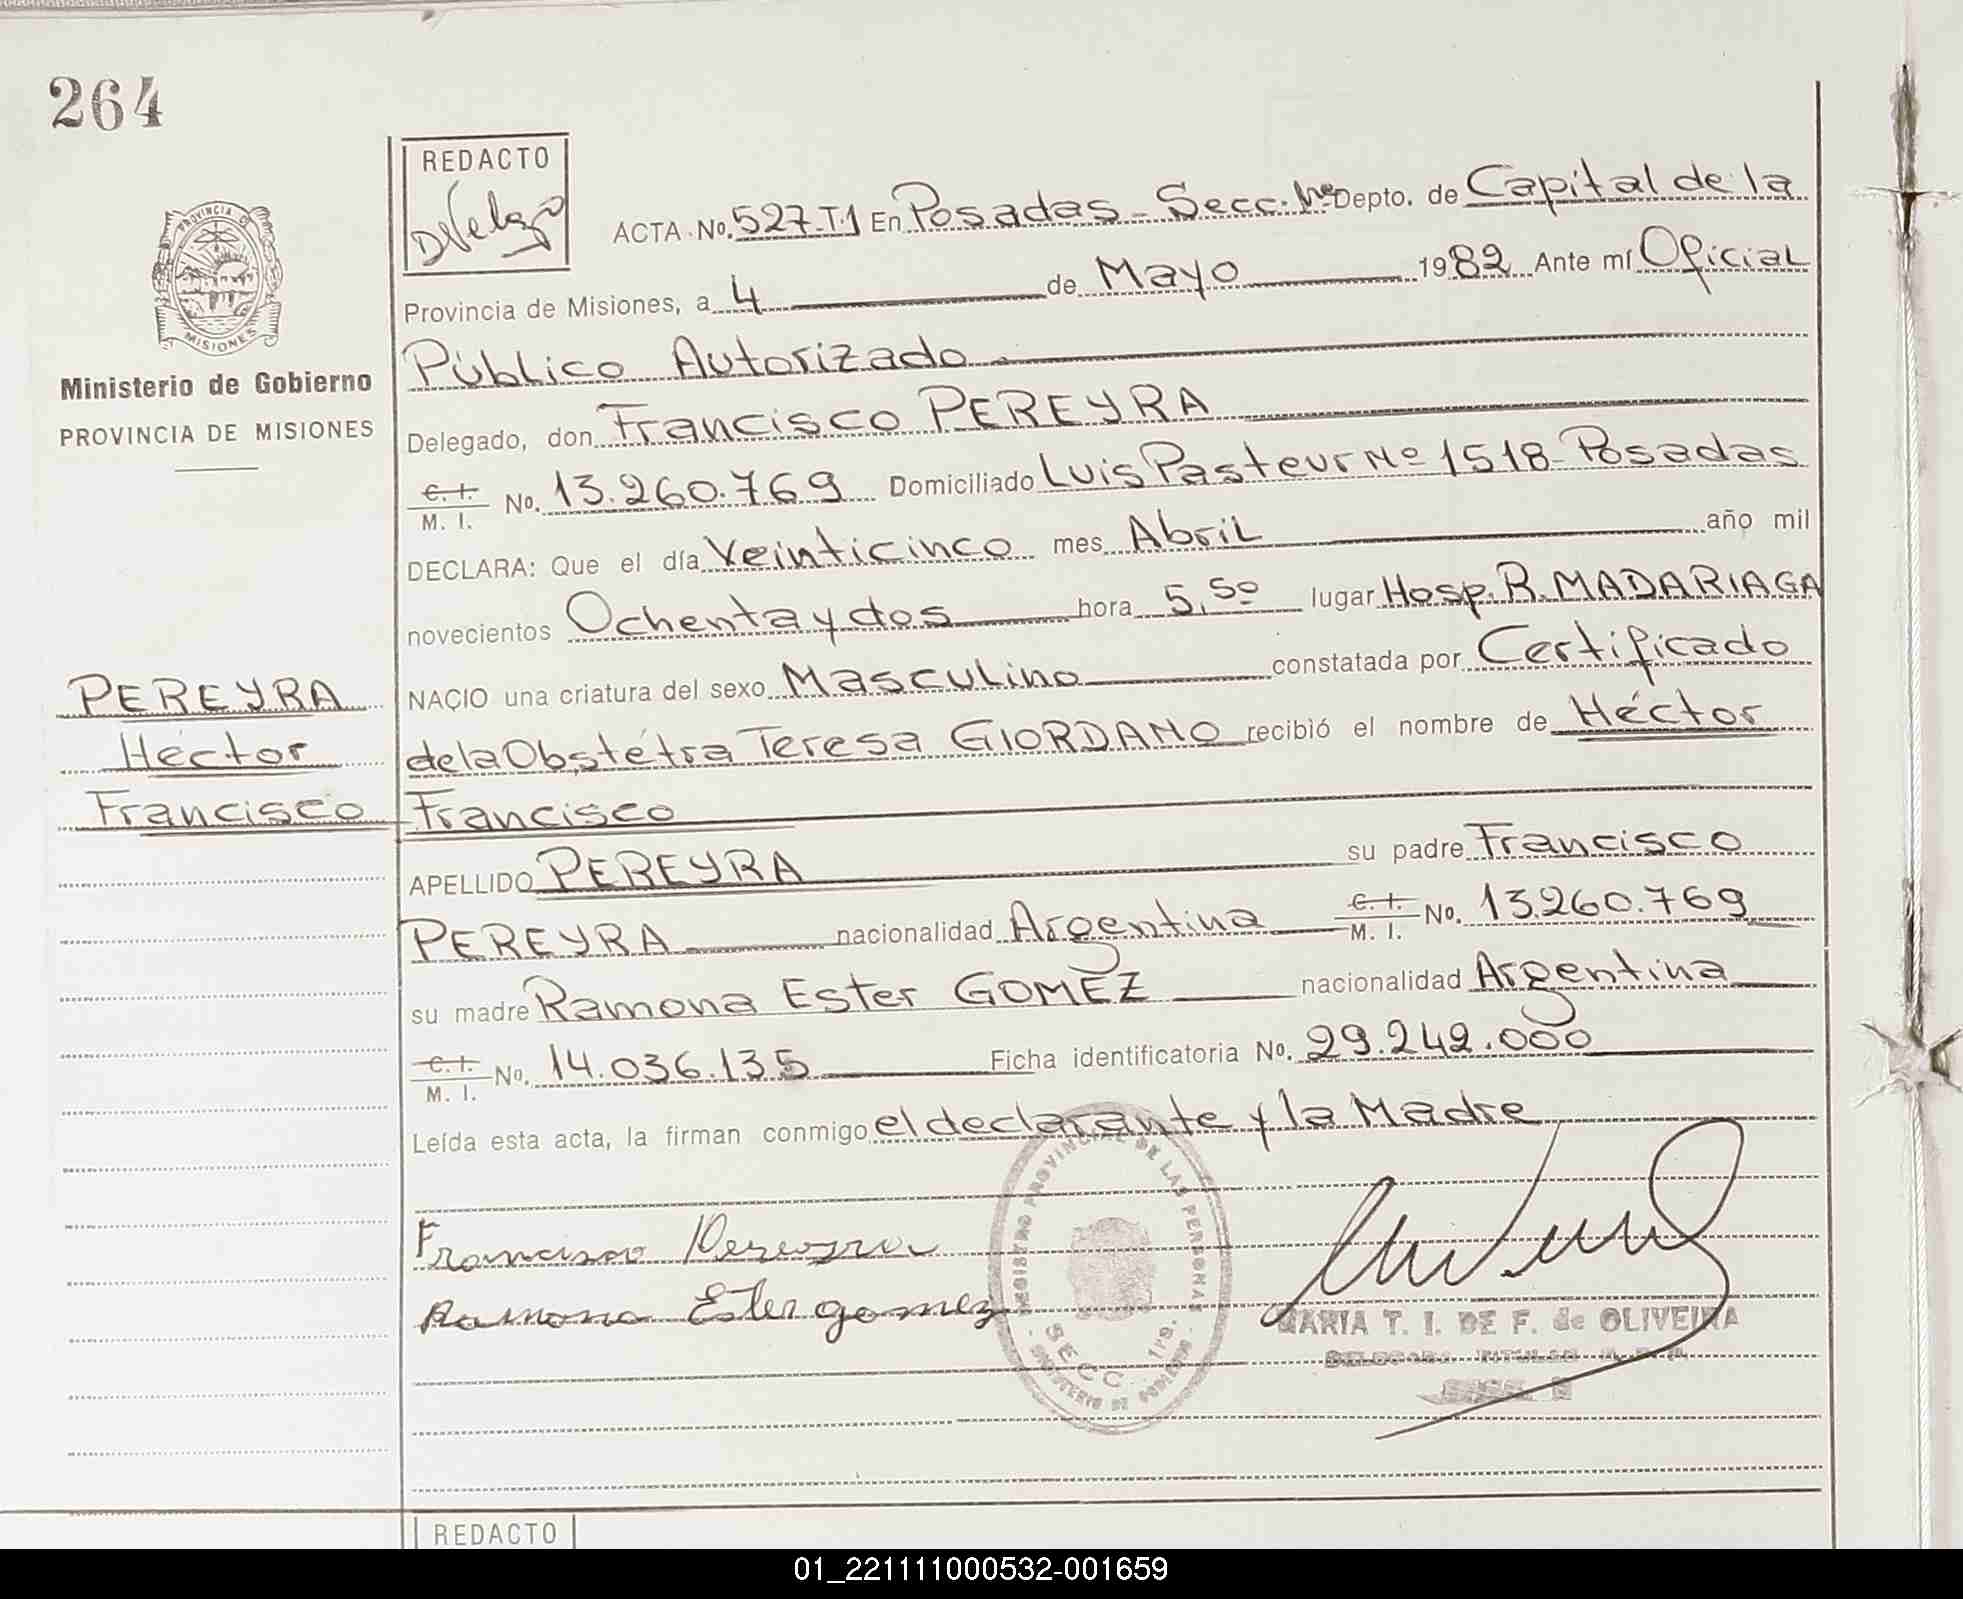 264
REDACTO
PROVINCIA DE
MISIONES
Ministerio de Gobierno
PROVINCIA DE MISIONES
ACTA No. 527-T.1 En Posadas - Secc. 1ra Depto. de Capital de la
Provincia de Misiones, a 4 de Mayo 1982 Ante mí Oficial
Público Autorizado
Delegado, don Francisco PEREYRA
C.I. M. I. No. 13.260.769 Domiciliado Luis Pasteur Nº 1518- Posadas
DECLARA: Que el día Veinticinco mes Abril año mil
novecientos Ochenta y dos hora 5,50 lugar Hosp. R. MADARIAGA
NACIO una criatura del sexo Masculino constatada por Certificado
de la Obstétra Teresa GIORDANO recibió el nombre de Héctor
Francisco
PEREYRA
Héctor
Francisco
APELLIDO PEREYRA su padre Francisco
PEREYRA nacionalidad Argentina C.I. M. I. No. 13.260.769
su madre Ramona Ester GOMEZ nacionalidad Argentina
C.I. M. I. No. 14.036.135 Ficha identificatoria No. 29.242.000
Leída esta acta, la firman conmigo el declarante y la Madre
Francisco Pereyra
Ramona Ester gomez
REGISTRO PROVINCIAL DE LAS PERSONAS
SECC. 1ra.
MINISTERIO DE GOBIERNO
MARIA T. I. DE F. de OLIVEIRA
REDACTO
01_221111000532-001659